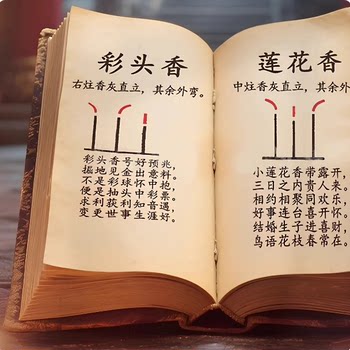 彩头香
右炷香灰直立，其余外弯。
彩头香号好预兆，
掘地见金出怀中，
不是彩球头意抱，
便是抽头中彩票。
求利获利知音遇，
变更世事生涯好。
莲花香
中炷香灰直立，其余外
小莲花香带露开，
三日之内贵人来。
相约相聚同欢乐，
好事连台喜开怀。
结婚生子进喜财，
鸟语花枝春常在。